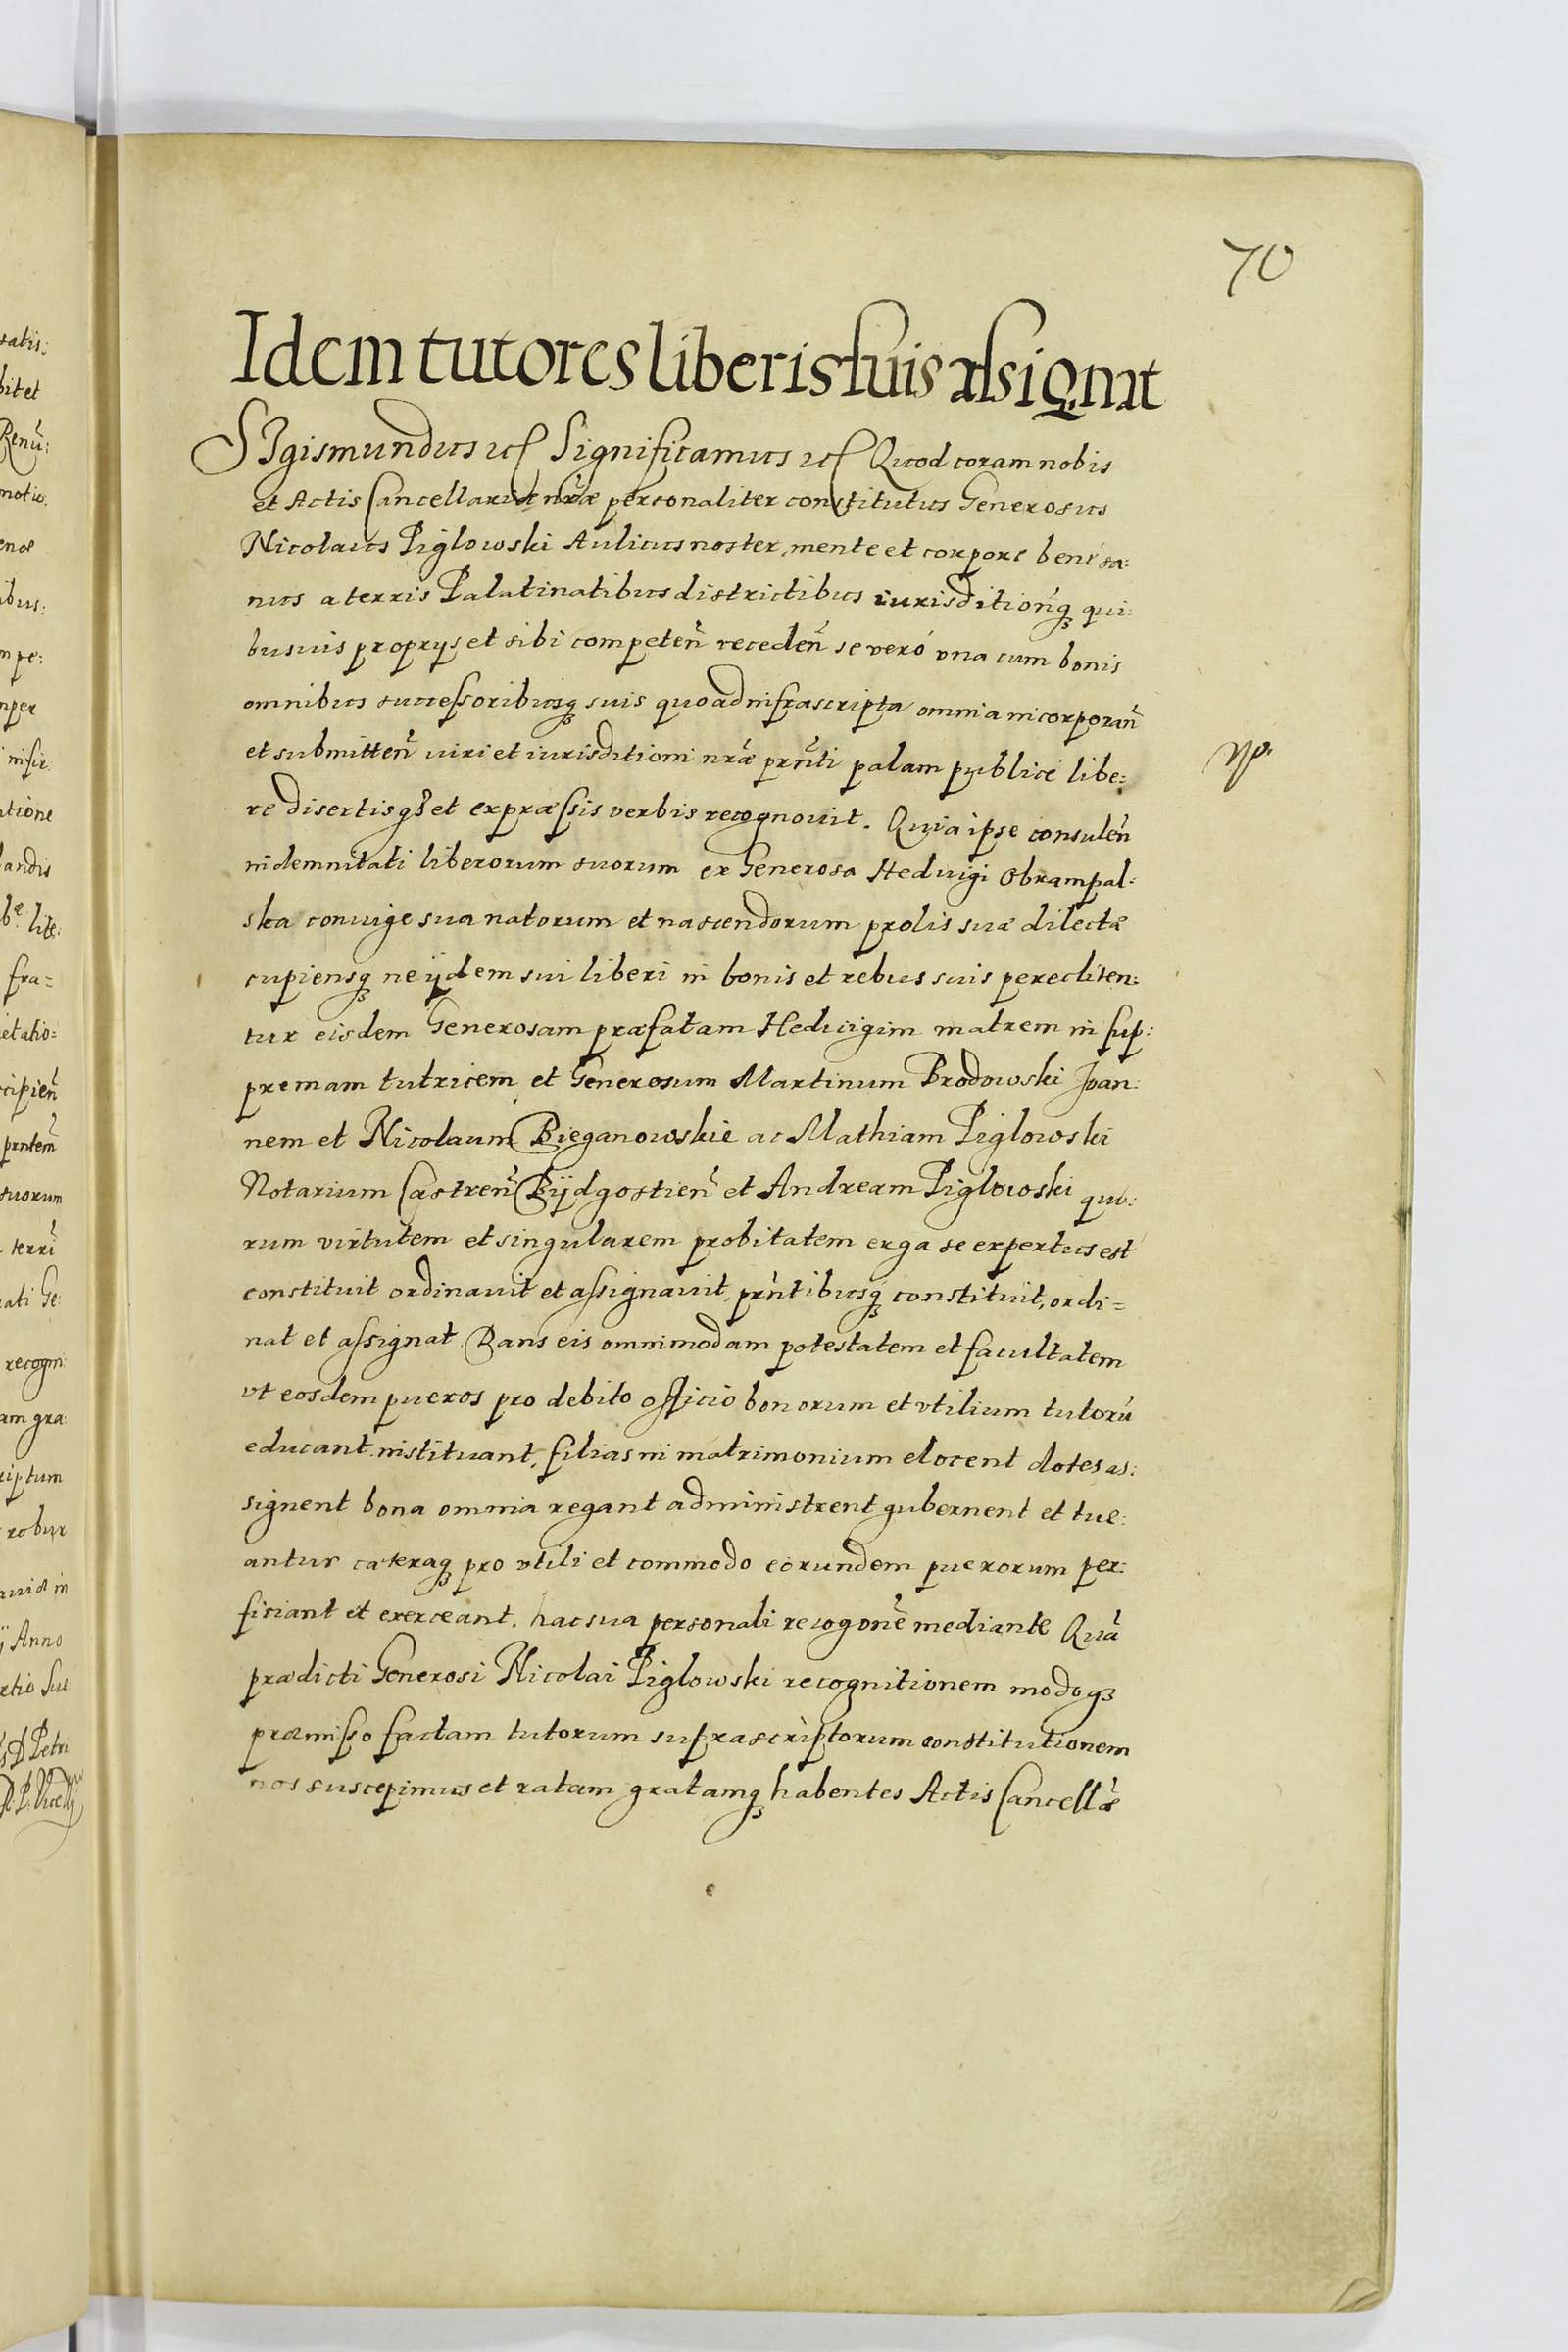 70
Idem tutores liberis suis assignat
SIgismundus etc Significamus etc Quod coram nobis
et Actis Cancellariæ nr̃æ personaliter constitutus Generosus
Nicolaus Piglowski Aulicus noster, mente et corpore bene sa:
nus a terris Palatinatibus districtibus iurisdition̄q₃ qui:
busuis proprijs et sibi competen̄ receden̄ se veró vna cum bonis
omnibus successoribusq₃ suis quo ad infrascripta omnia incorporan̄
et submitten̄ iuri et iurisditioni nr̃æ prn̄ti palam publicé libe:
re disertisq₃ et expræssis verbis recognouit. Quia ipse consulen̄
indemnitati liberorum suorum ex Generosa Heduigi Obrampal:
ska coniuge sua natorum et nascendorum prolis suæ dilectæ
cupiensq₃ ne ijdem sui liberi in bonis et rebus suis perecliten:
tur eisdem Generosam præfatam Heduigim matrem in sup:
premam tutricem et Generosum Martinum Brodowski Joan:
nem et Nicolaum Bieganowskie ac Mathiam Piglowski
Notarium Castren̄ Bijdgostien̄ et Andream Piglowski quo:
rum virtutem et singularem probitatem erga se expertus est
constituit ordinauit et assignauit, prn̄tibusq₃ constituit, ordi=
nat et assignat. Dans eis omnimodam potestatem et facultatem
vt eosdem pueros pro debito officio bonorum et vtilium tutorū
educant instituant, filias in matrimonium elocent dotes as:
signent bona omnia regant administrent gubernent et tue:
antur cæteraq₃ pro vtili et commodo eorundem puerorum per:
ficiant et exerceant. hac sua personali recogone᷉ mediante Quā
prædicti Generosi Nicolai Piglowski recognitionem modoq₃
præmisso factam tutorum suprascriptorum constitutionem
nos suscepimus et ratam gratamq₃ habentes Actis Cancellæ᷉